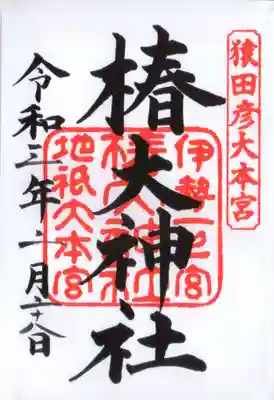 猿田彦大本宮
伊勢一之宮
椿大神社
椿大神社
地祇大本宮
令和三年二月